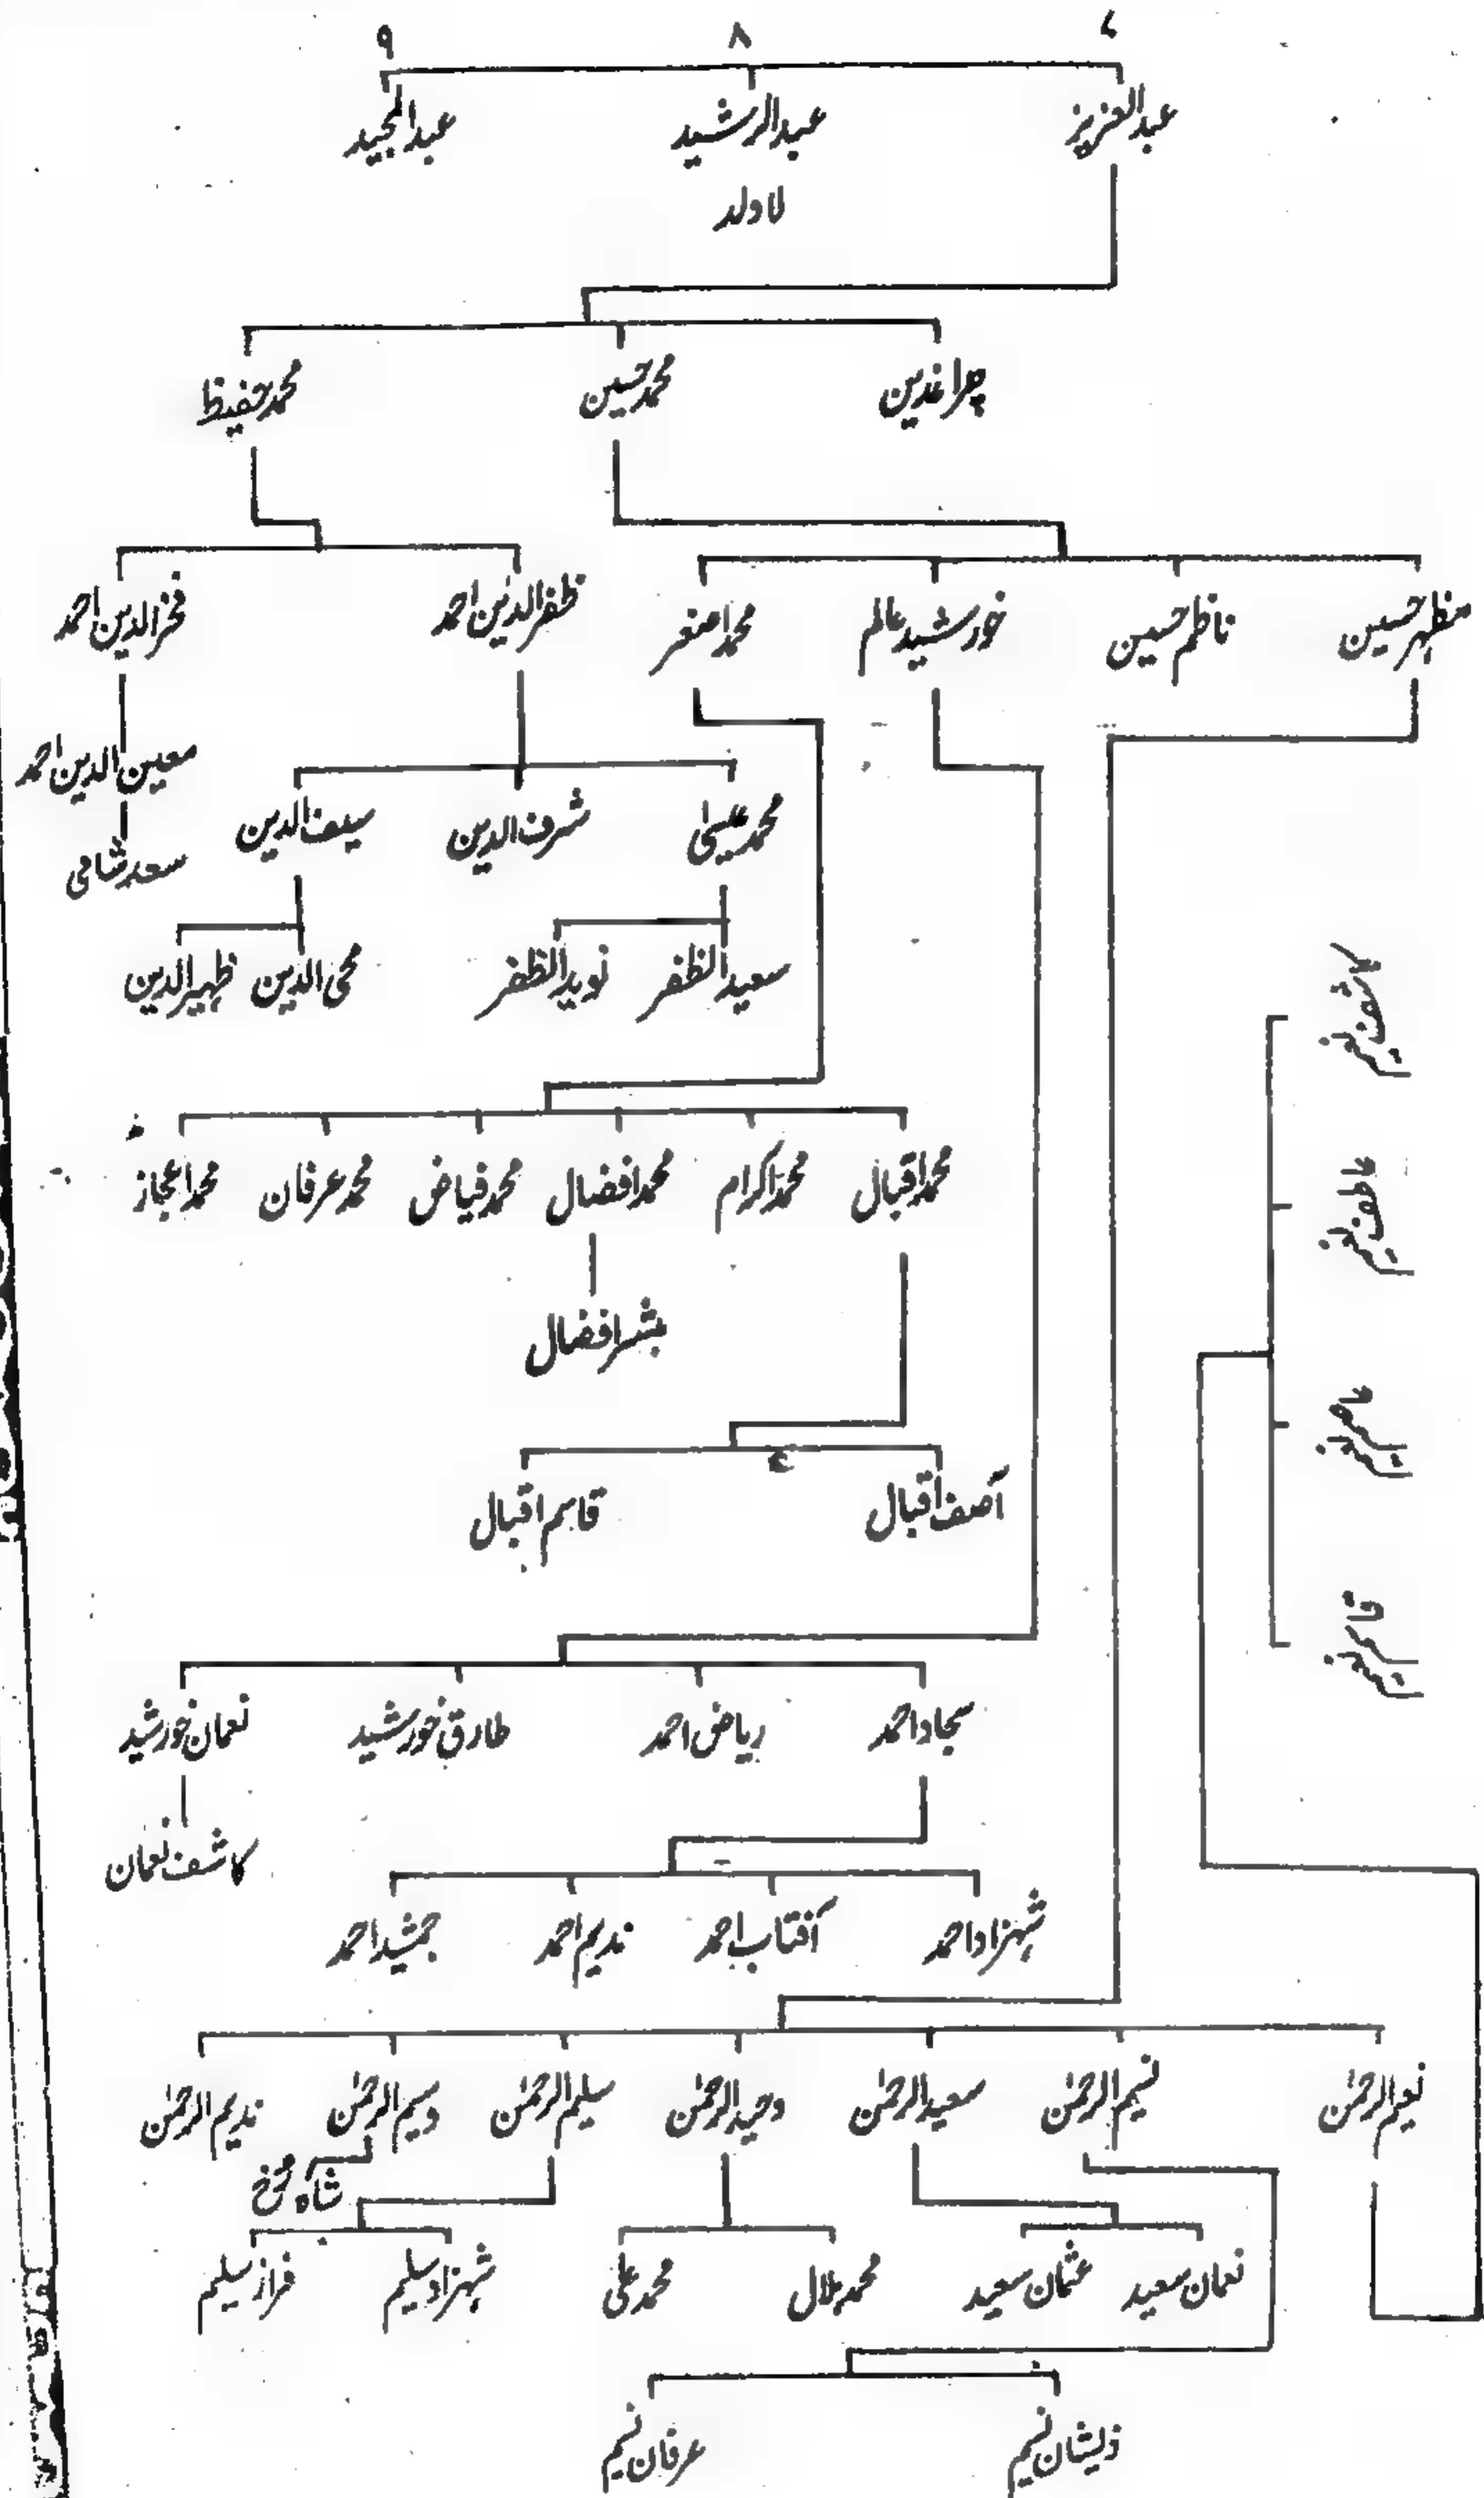 ۷ ۸ ۹
عبدالعزیز عبدالرشید عبدالمجید
لاولد
چراغدین محمد حسین محمد حفیظ
مظہر حسین ناظم حسین خورشید عالم محمد اصغر ظفرالدین احمد فخرالدین احمد
معین الدین احمد
محمد عیسیٰ شرف الدین سیف الدین
سعد ثانی
سعید الظفر نوید الظفر محی الدین ظہیرالدین
محمد اقبال محمد اکرام محمد افضال محمد فیاض محمد عرفان محمد اعجاز
مبشر افضال
آصف اقبال قاسم اقبال
سجاد احمد ریاض احمد طارق خورشید نعمان خورشید
کاشف نعمان
شہزاد احمد آفتاب احمد ندیم احمد جمشید احمد
نعیم الرحمٰن نسیم الرحمٰن سعید الرحمٰن وحید الرحمٰن سلیم الرحمٰن وسیم الرحمٰن ندیم الرحمٰن
شاہ
نعمان سعید عثمان سعید محمد بلال محمد علی شہزاد سلیم فراز سلیم
ذیشان نسیم عرفان نسیم